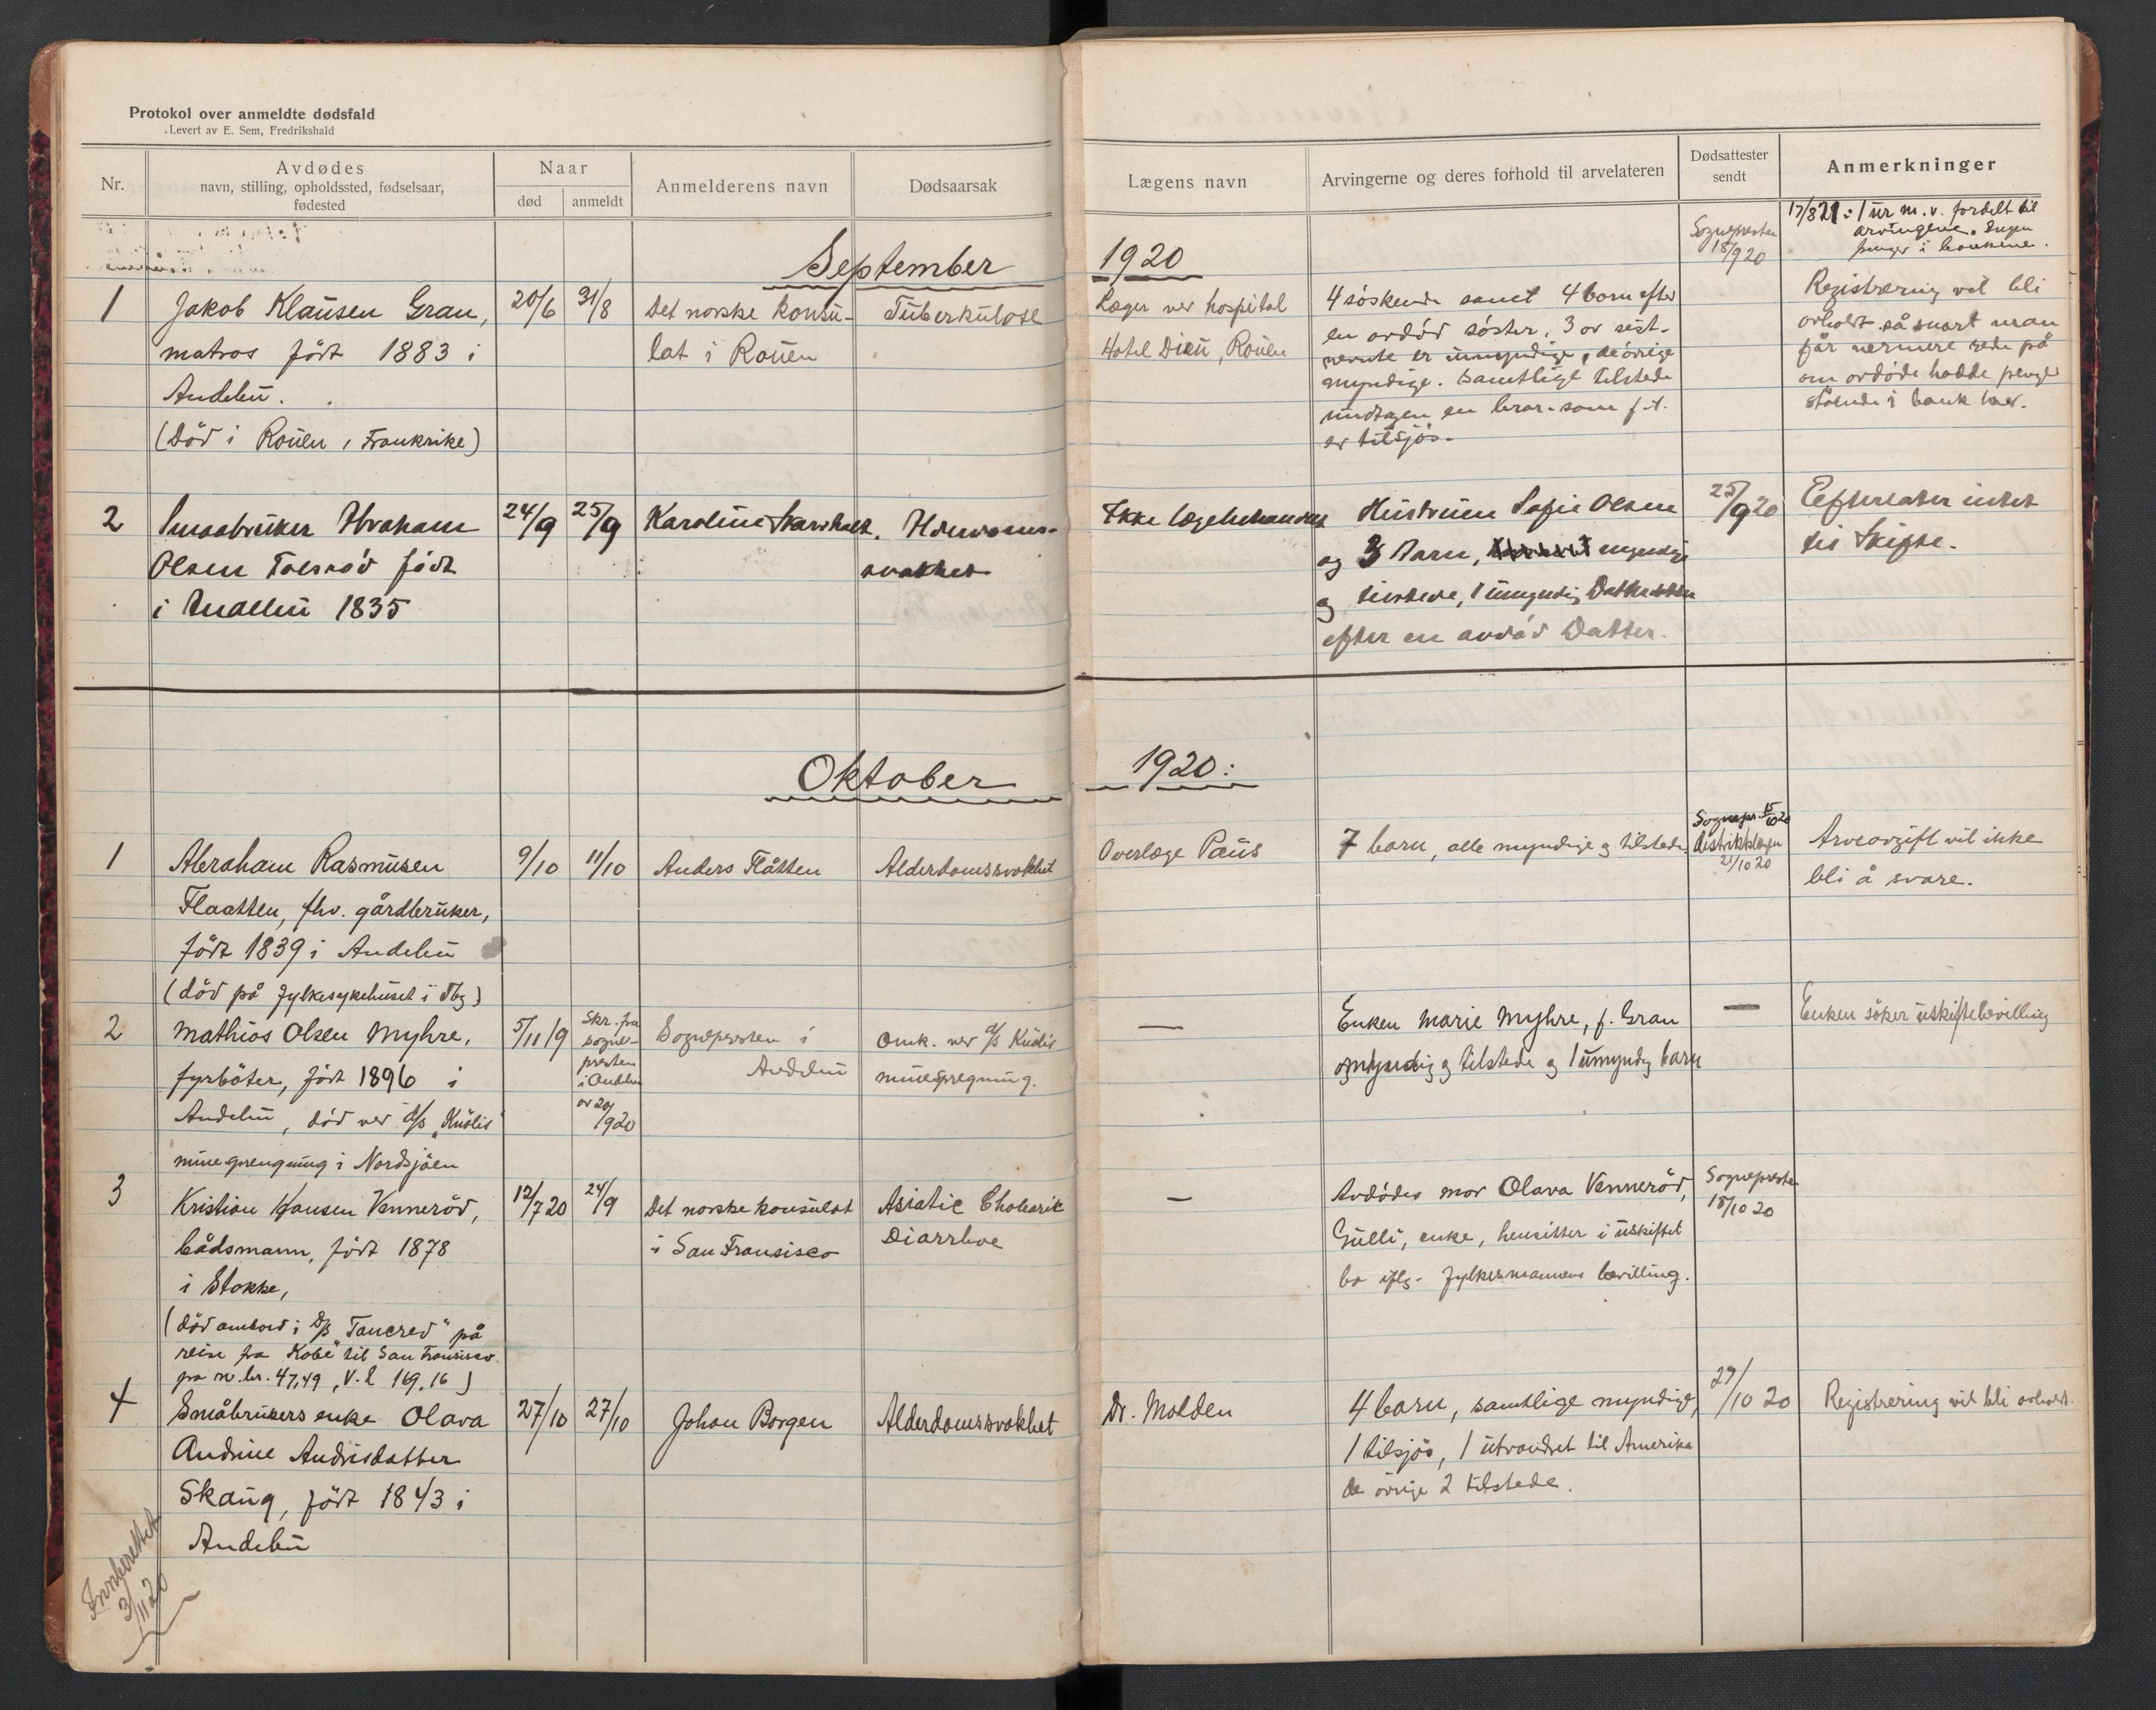 Protokol over anmeldte dødsfald
Levert av E. Sem, Fredrikshald
Nr.
Avdødes
navn, stilling, opholdssted, fødselsaar,
fødested
Naar
død
anmeldt
Anmelderens navn
Dødsaarsak
Lægens navn
Arvingerne og deres forhold til arvelateren
Dødsattester
sendt
Anmerkninger
September
1920
1
Jakob Klausen Gran,
matros født 1883 i
Andebu.
(Död i Rouen, Frankrike)
20/6
31/8
Det norske konsu-
lat i Rouen
Tuberkulose
Læger ver hospital
Hotel Dieu, Rouen
4 söskende samt 4 born efter
en avdöd söster, 3 av sist-
nevnte er umyndige, de övrige
myndige. Samtlige tilstede
undtagen en bror som f.t.
er tilsjös.
Sogneprsten
18/9 20
17/8 21: 1 ur m.v. fordelt til
arvingene. Ingen
penger i bankene.
Registrering vil bli
avholdt så snart man
får nermere rede på
om avdöde hadde penger
stående i bank her.
2
Smaabruker Abraham
Olsen Tolsrød født
i Andebu 1835
24/9
25/9
Karoline
Alderdoms-
svakhet
Ikke lægebehandlet
Hustruen Sofie Olsen
og 3 Barn, myndige
og tilstede, 1 umyndig Datterdatter
efter en avdød Datter.
25/9 20
Efterlater intet
til Skifte.
Oktober
1920:
1
Abraham Rasmusen
Flaatten, fhv. gårdbruker,
födt 1839 i Andebu
(död på fylkesykehuset i Tbg)
9/10
11/10
Anders Flåtten
Alderdomssvakhet
Overlæge Paus
7 barn, alle myndige og tilstede
Sognepr. 15/10 20
distriktslægen
21/10 20
Arveavgift vil ikke
bli å svare.
2
Mathias Olsen Myhre,
fyrböter, födt 1896 i
Andebu, död ver d/s "Kudis"
minesprengning i Nordsjöen
5/11 19
Skr. fra
sogne-
presten
i Andebu
av 20/
1920
Sognepresten i
Andebu
Omk. ver d/s Kudis
minespregning.
—
Enken Marie Myhre, f. Gran
myndig og tilstede og 1 umyndig barn
—
Enken söker uskiftebevilling
3
Kristian Hansen Venneröd,
bådsmann, födt 1878
i Stokke,
(död ombord i D/S "Tancred" på
reise fra Kobe til San Fransisco.
pa n. br. 47,49, V. l 169,16)
12/7 20
24/9
Det norske konsulat
i San Fransisco
Asiatic Cholearic
Diarrhoe
—
Avdödes mor Olava Venneröd,
Gulli, enke, hensitter i uskiftet
bo iflg. fylkesmannens bevilling.
Sogneprsten
18/10 20
4
Småbrukers enke Olava
Andrine Andrisdatter
Skaug, födt 1843 i
Andebu
27/10
27/10
Johan Borgen
Alderdomssvakhet
Dr. Molden
4 barn, samtlige myndige,
1 tilsjös, 1 utvandret til Amerika
de övrige 2 tilstede.
27/10 20
Registrering vil bli avholdt.
Innberettet
3/11 20